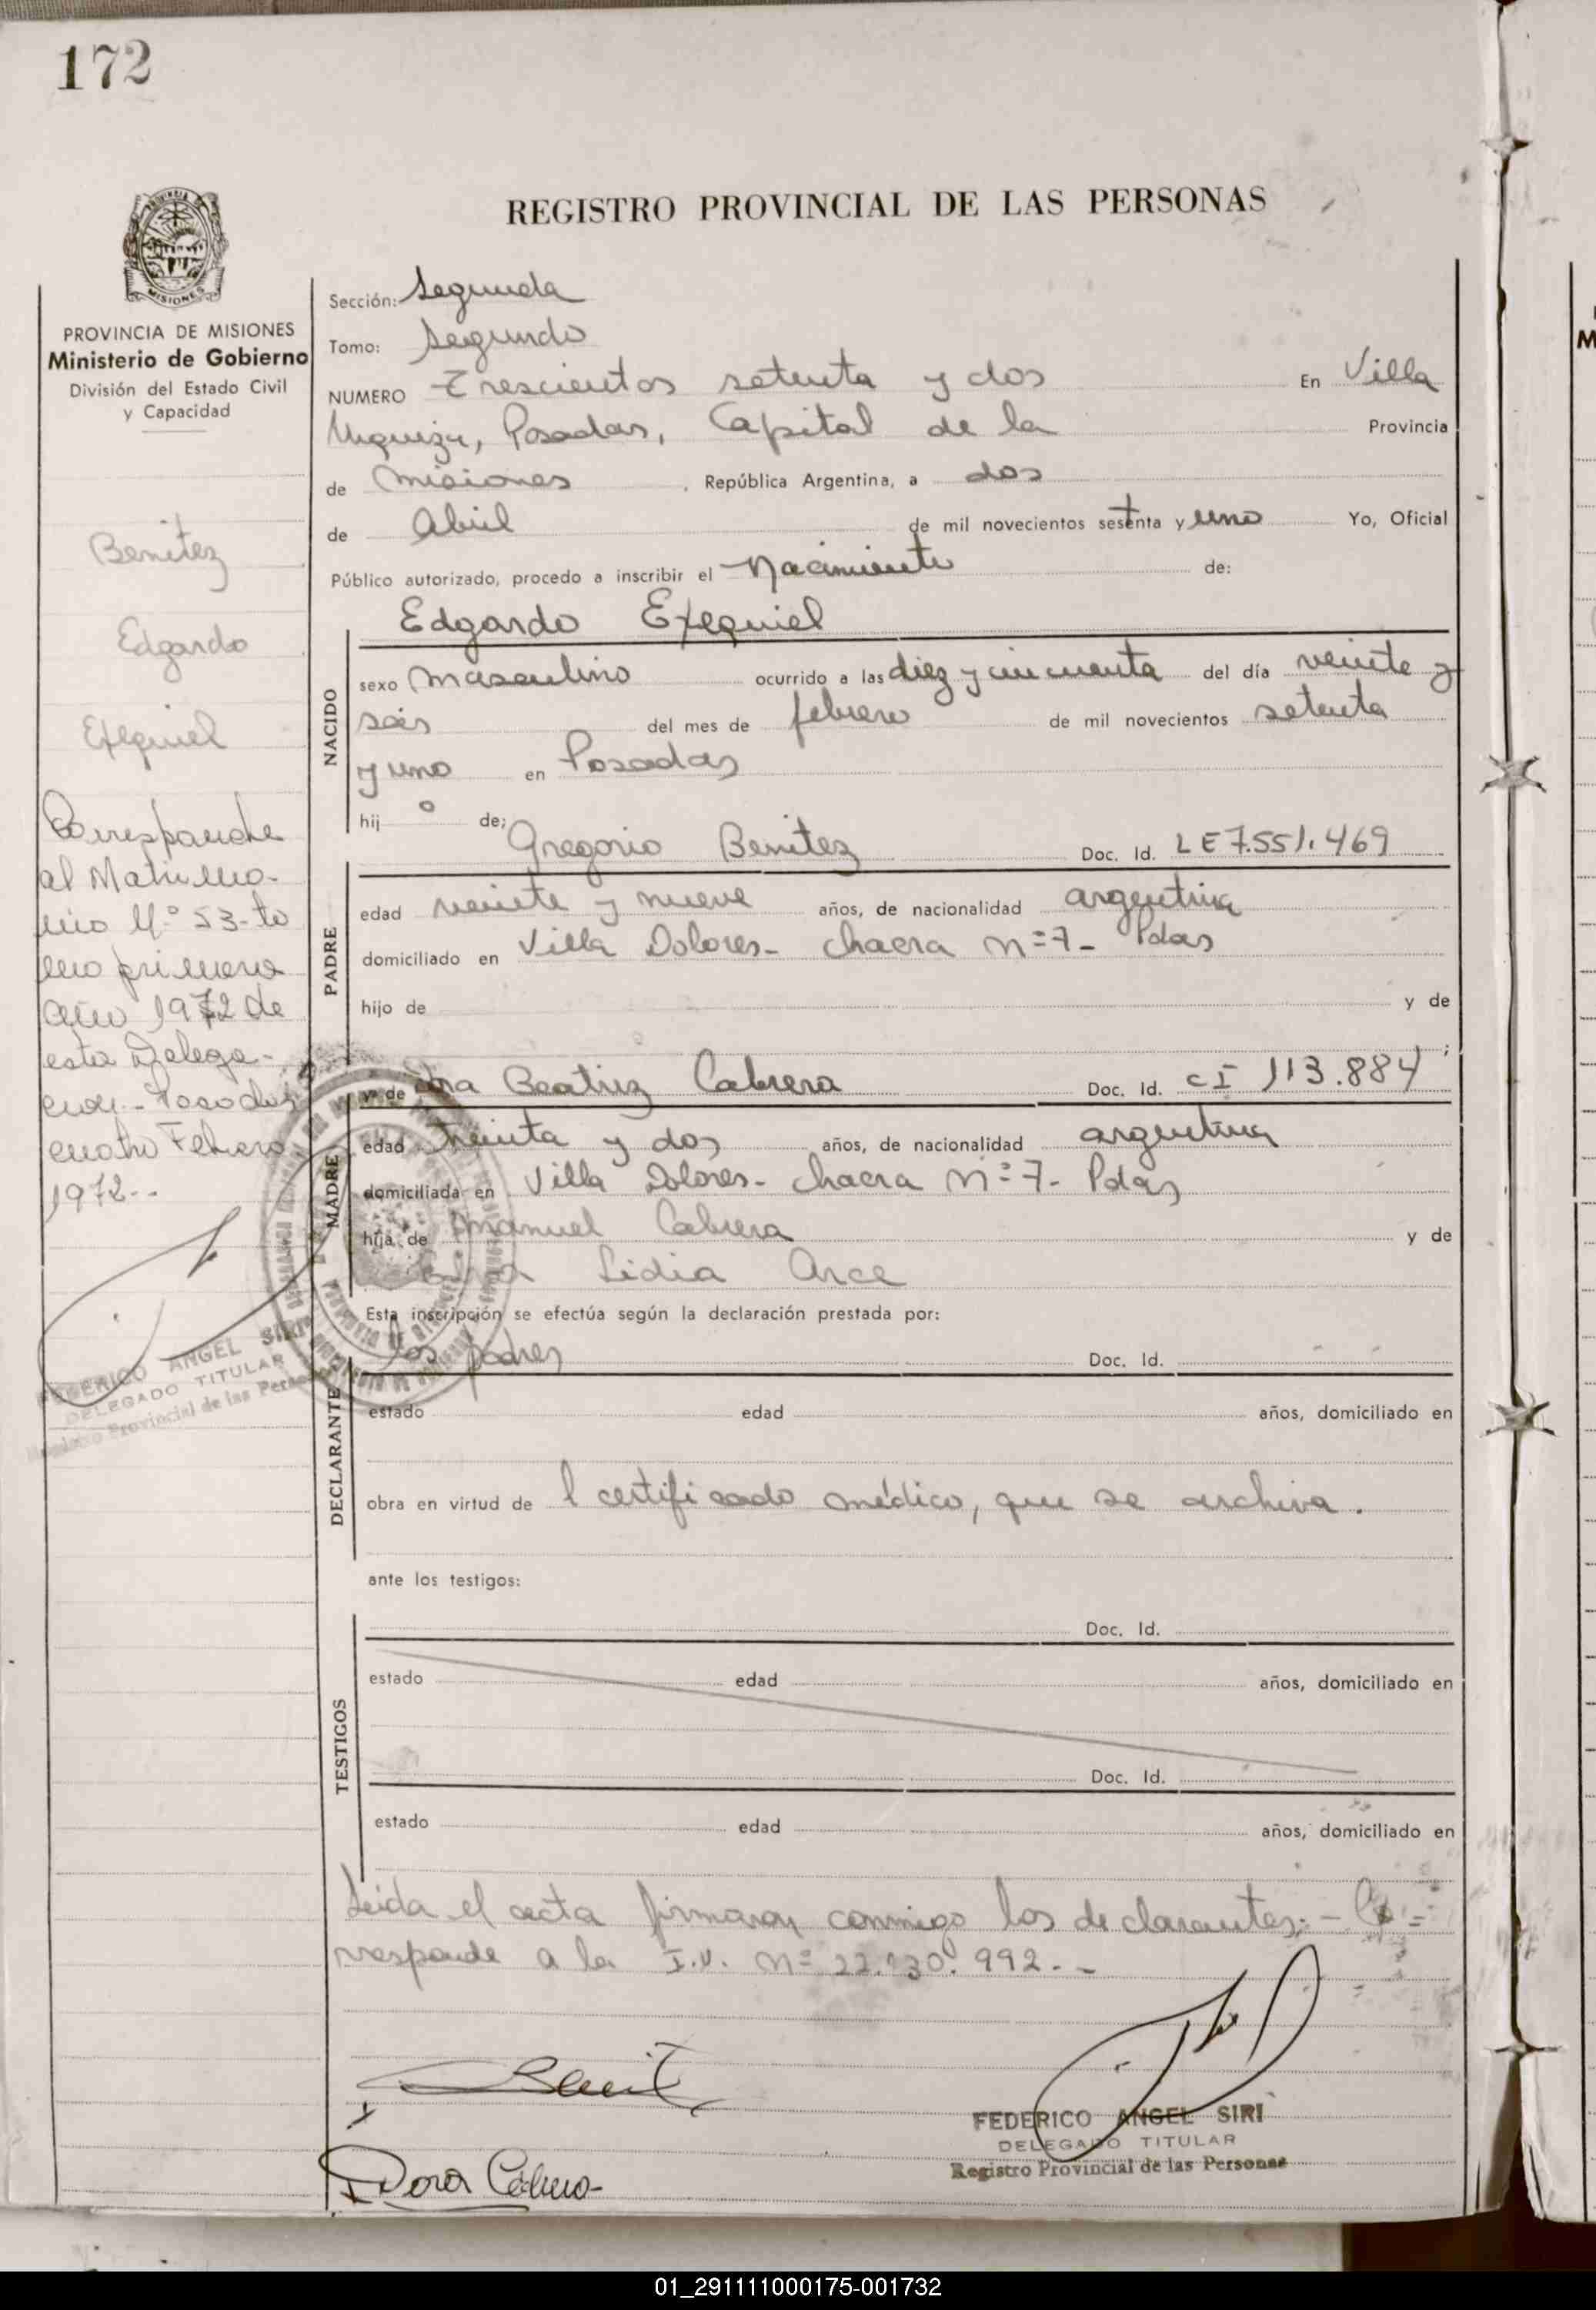 172
REGISTRO PROVINCIAL DE LAS PERSONAS
MISIONES
PROVINCIA DE MISIONES
Ministerio de Gobierno
División del Estado Civil
y Capacidad
Benitez
Edgardo
Exequiel
Corresponde
al Matrimo-
nio Nº 53-to
mo primero
año 1972 de
esta Delega-
cion - Posadas
cuatro Febrero
1972--
FEDERICO ANGEL SIRI
DELEGADO TITULAR
Registro Provincial de las Personas
Sección: Segunda
Tomo: Segundo
NUMERO Trescientos setenta y dos En Villa
Urquiza, Posadas, Capital de la Provincia
de Misiones, República Argentina, a dos
de Abril de mil novecientos setenta y uno Yo, Oficial
Público autorizado, procedo a inscribir el Nacimiento de:
Edgardo Exequiel
NACIDO
sexo masculino ocurrido a las diez y cincuenta del día veinte y
seis del mes de febrero de mil novecientos setenta
y uno en Posadas
hijo de:
Gregorio Benitez Doc. Id. LE 7.551.469
PADRE
edad veinte y nueve años, de nacionalidad argentina
domiciliado en Villa Dolores- chacra n=7- Pdas
hijo de y de
;
y de Beatriz Cabrera Doc. Id. CI 113.884
MADRE
edad treinta y dos años, de nacionalidad argentina
domiciliada en Villa Dolores- chacra n=7- Pdas
hija de Manuel Cabrera y de
Lidia Arce
Esta inscripción se efectúa según la declaración prestada por:
los padres Doc. Id.
DECLARANTE
estado edad años, domiciliado en
obra en virtud de l certificado médico, que se archiva.
ante los testigos:
Doc. Id.
TESTIGOS
estado edad años, domiciliado en
Doc. Id.
estado edad años, domiciliado en
Leida el acta firmaron conmigo los declarantes:- Co=
rresponde a la I.N. n= 22.130.992.-
Benit
Dora Cabrera
FEDERICO ANGEL SIRI
DELEGADO TITULAR
Registro Provincial de las Personas
01_291111000175-001732